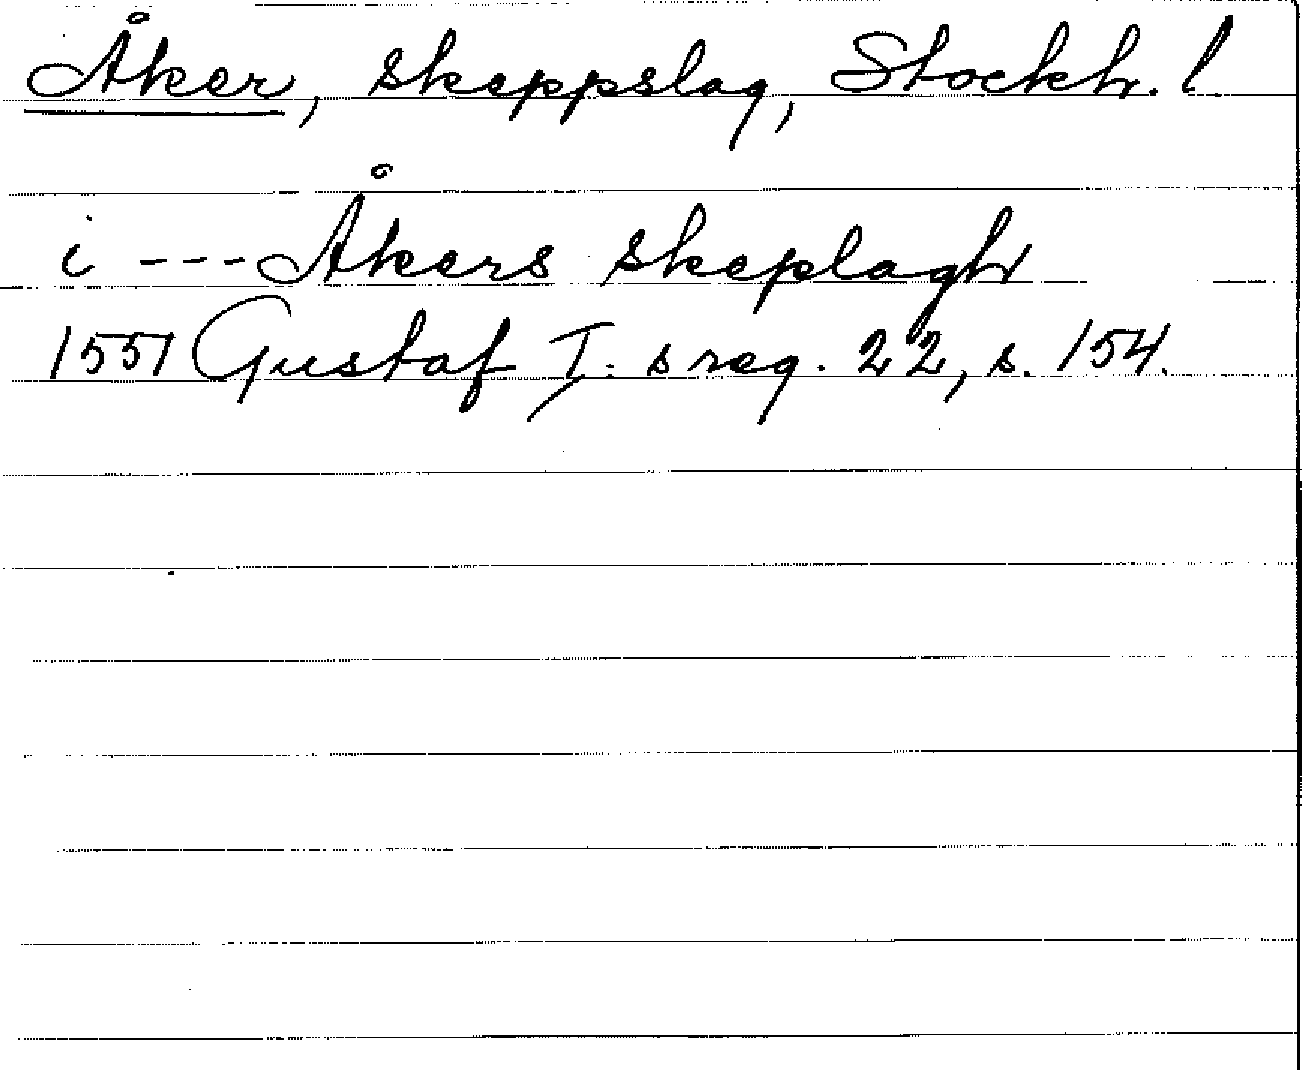 Åker, skeppslag, Stockh. l.
i --- Åkers skeplagh
1551 Gustaf I:s reg. 22, s. 154.